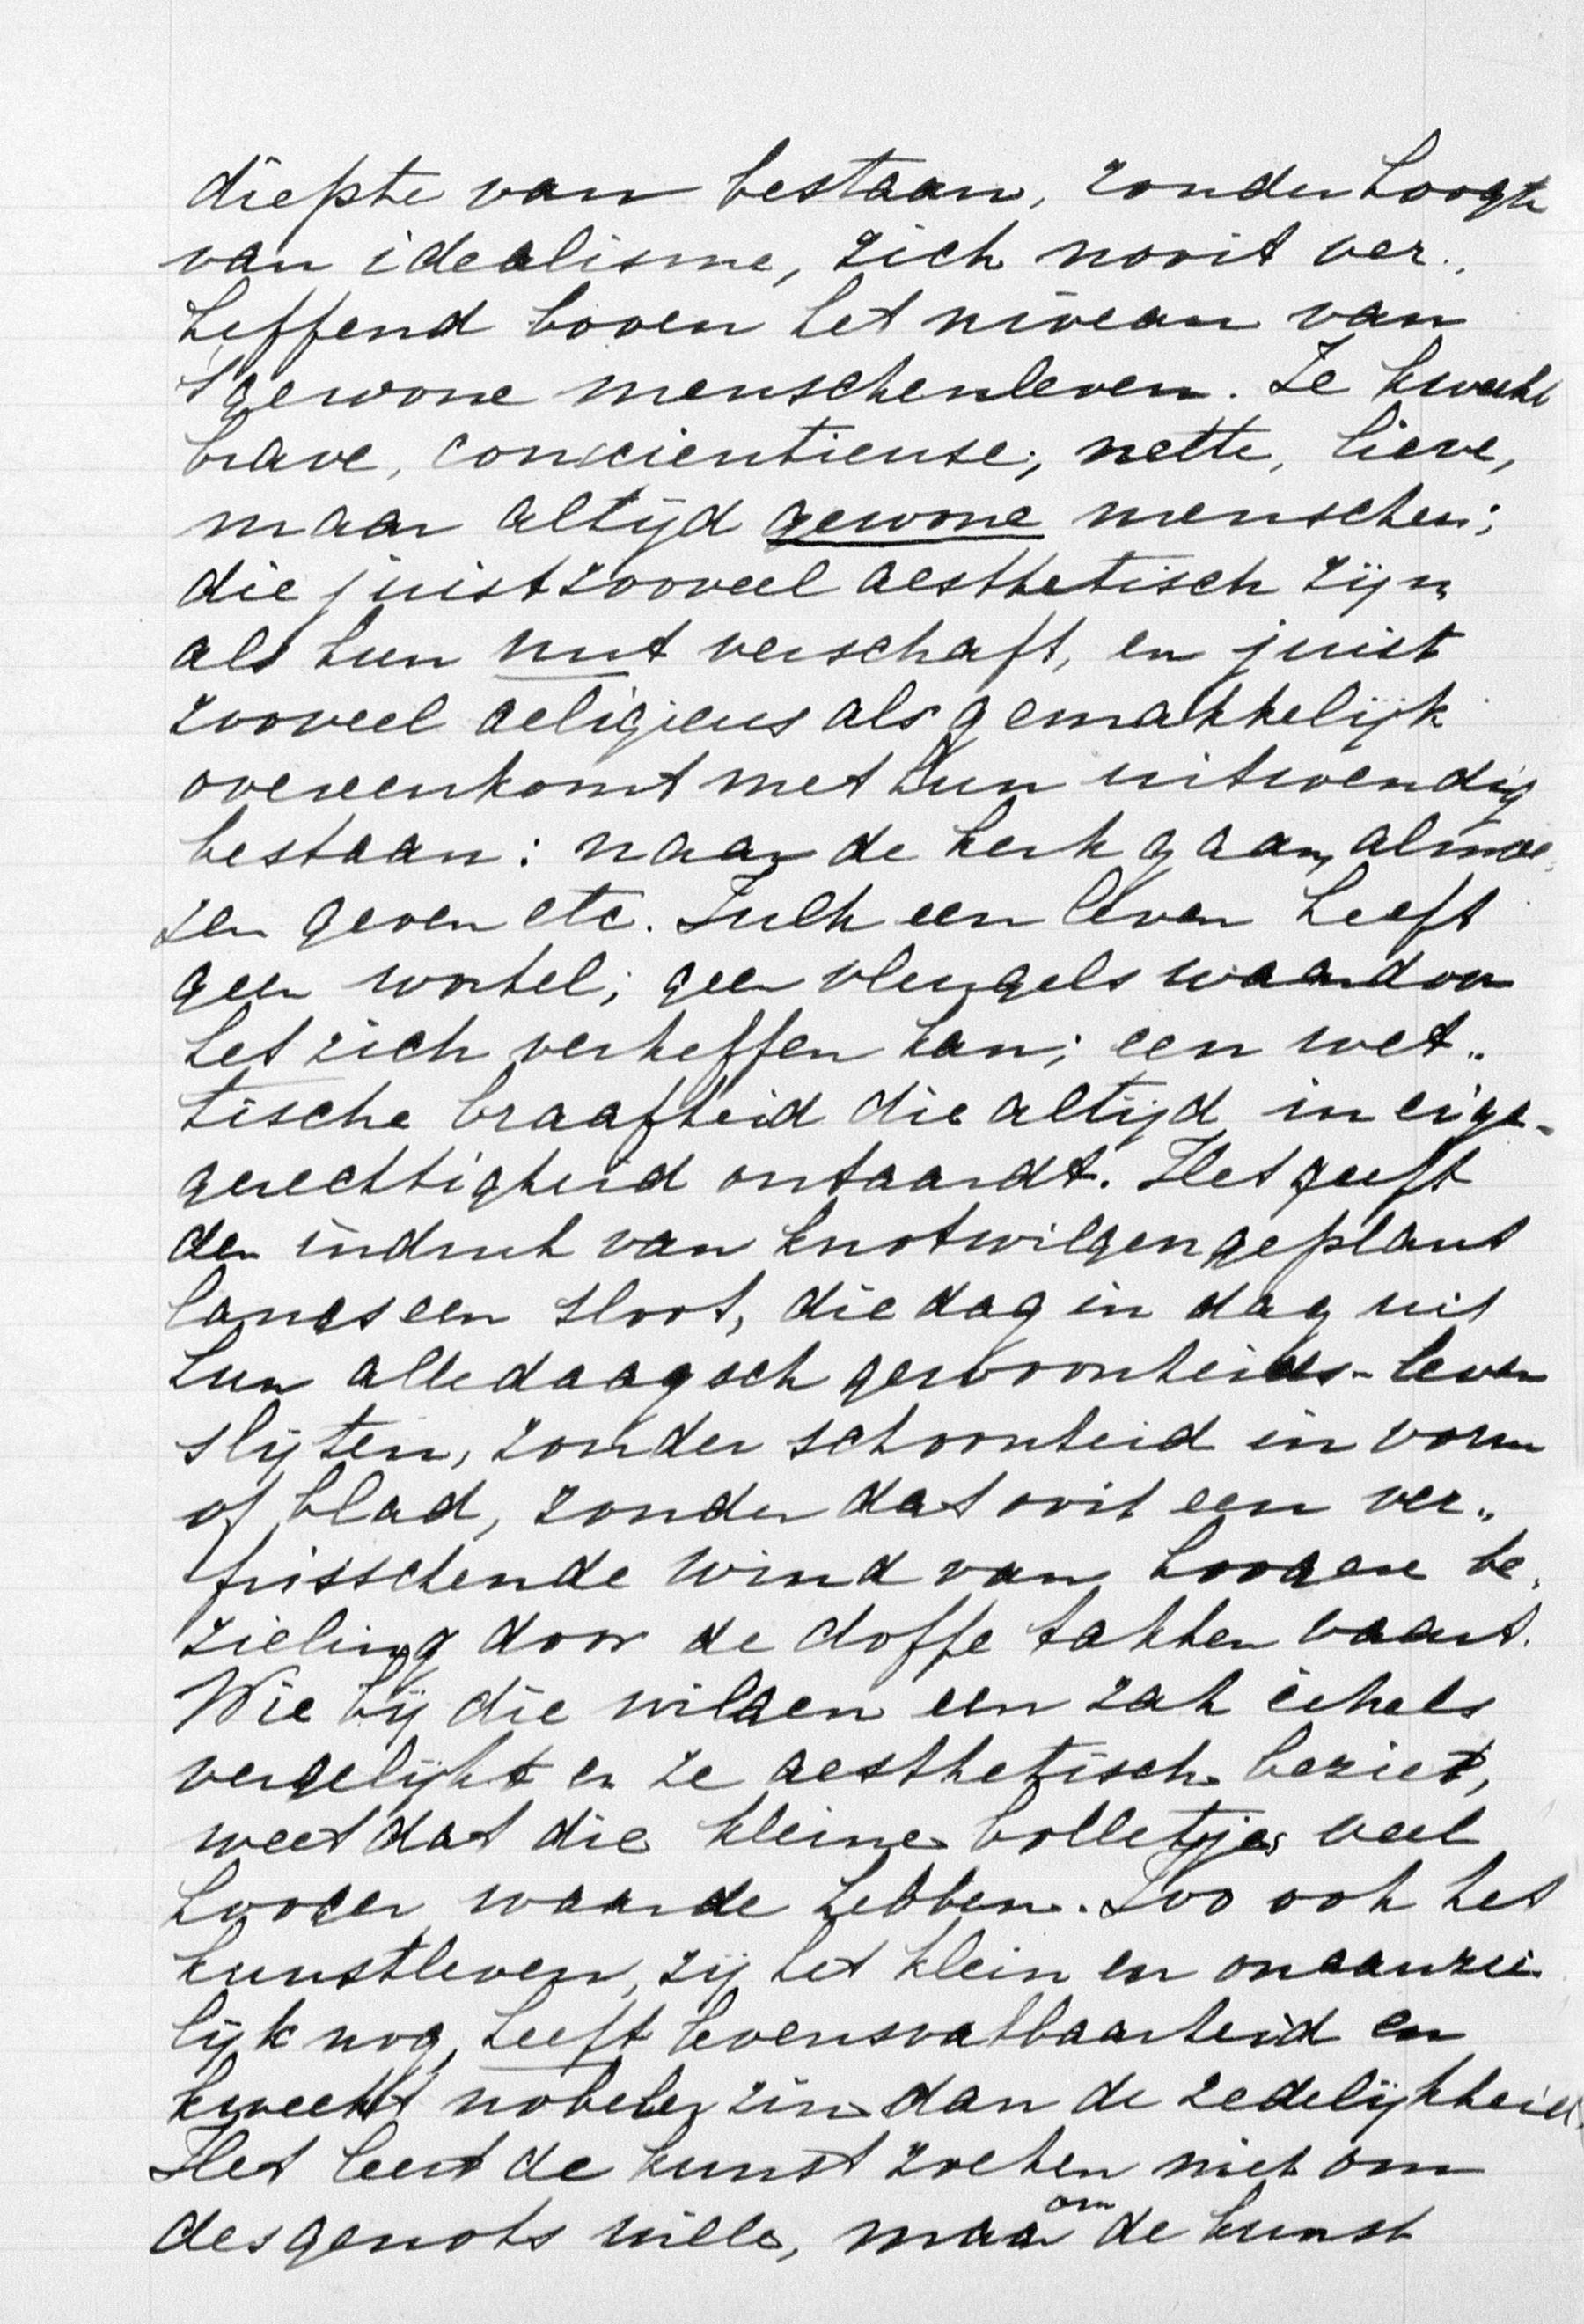 diepte van bestaan, zonder hoogte
van idealisme, zich nooit ver„
heffend boven het niveau van
't gewone menschenleven. Ze kweekt
brave, conscientieuse, nette, lieve,
maar altijd gewone menschen;
die juist zooveel aesthetisch zijn
als hun nut verschaft, en juist
zooveel religieus als gemakkelijk
overeenkomt met hun uitwendig
bestaan: naar de kerk gaan, almoe„
zen geven etc. Zulk een leven heeft
geen wortel; geen vleugels waardoor
het zich verheffen kan; een wet„
tische braafheid die altijd in eige-
gerechtigheid ontaardt. Het geeft
den indruk van knotwilgen geplant
langs een sloot, die dag in dag uit
hun alledaagsch gewoonheids-leven
slijten, zonder schoonheid in vorm
of blad, zonder dat ooit een ver„
frisschende wind van hoogere be„
zieling door de doffe takken vaart.
Wie bij die wilgen een zak eikels
vergelijkt en ze aesthetisch beziet,
weet dat die kleine bolletjes veel
hooger waarde hebben. Zoo ook het
kunstleven, zij het klein en onaanzie„
lijk nog, heeft levensvatbaarheid en
kweekt nobeler zin dan de zedelijkheid.
Het leert de kunst zoeken niet om
des genots wille, maar om de kunst